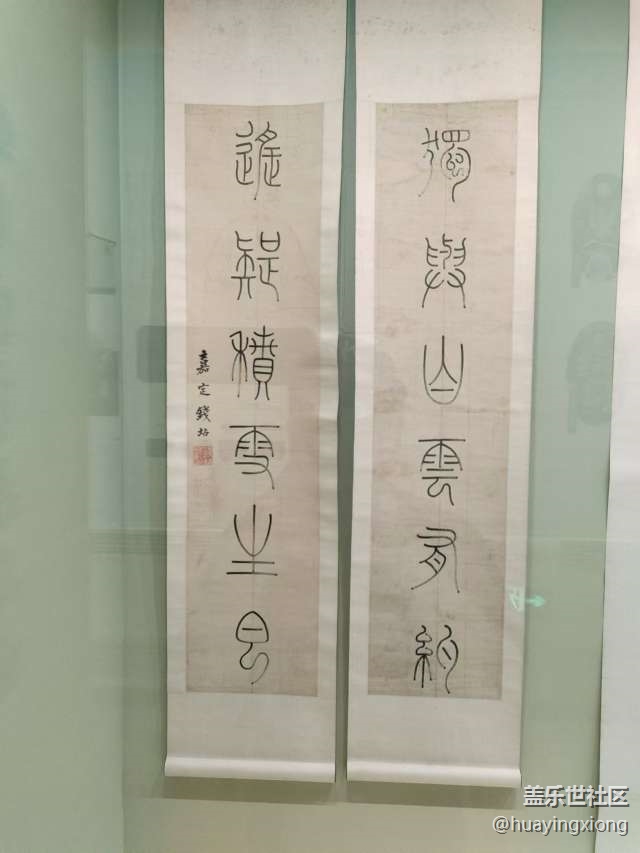 獨與山雲有約
遙疑積雪生
嘉定錢坫
盖乐世社区
@huayingxiong